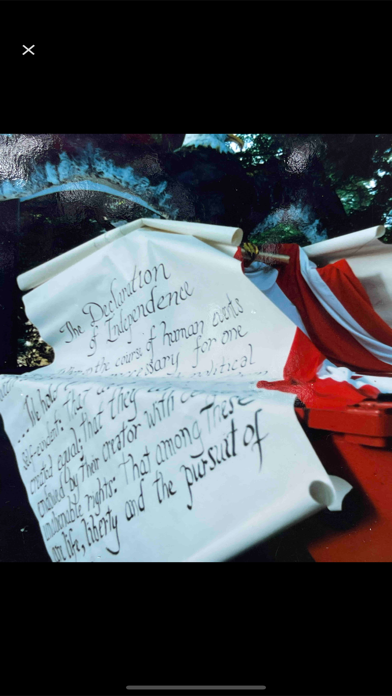 The Declaration
of Independence
the course of human events
necessary for one
political
We hold
self-evident: That
created equal: that they
endowed by their creator with
unalienable rights: That among These
are life, liberty and the pursuit of